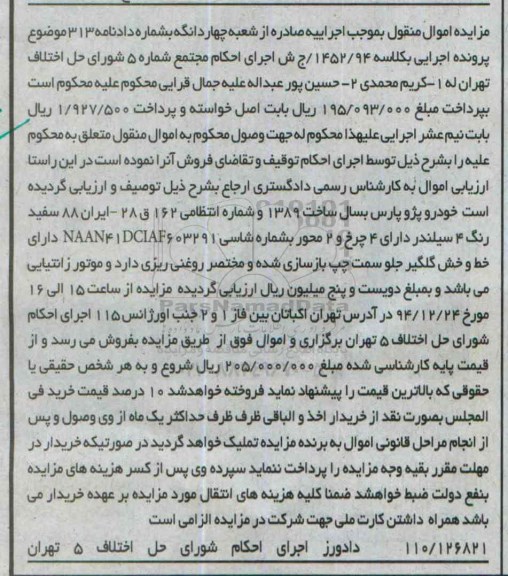 مزایده اموال منقول بموجب اجراییه صادره از شعبه چهاردانگه بشماره دادنامه ۳۱۳ موضوع
پرونده اجرایی بکلاسه ۱۴۵۲/۹۴/ج ش اجرای احکام مجتمع شماره ۵ شورای حل اختلاف
تهران له ۱-کریم محمدی ۲- حسین پور عبداله علیه جمال قرایی محکوم علیه محکوم است
بپرداخت مبلغ ۱۹۵/۰۹۳/۰۰۰ ریال بابت اصل خواسته و پرداخت ۱/۹۲۷/۵۰۰ ریال
بابت نیم عشر اجرایی علیهذا محکوم له جهت وصول محکوم به اموال منقول متعلق به محکوم
علیه را بشرح ذیل توسط اجرای احکام توقیف و تقاضای فروش آنرا نموده است در این راستا
ارزیابی اموال به کارشناس رسمی دادگستری ارجاع بشرح ذیل توصیف و ارزیابی گردیده
است خودرو پژو پارس بسال ساخت ۱۳۸۹ و شماره انتظامی ۱۶۲ ق ۲۸ -ایران ۸۸ سفید
رنگ ۴ سیلندر دارای ۴ چرخ و ۲ محور بشماره شاسی NAAN۴۱DCIAF۶۰۳۲۹۱ دارای
خط و خش گلگیر جلو سمت چپ بازسازی شده و مختصر روغنی ریزی دارد و موتور زانتیایی
می باشد و بمبلغ دویست و پنج میلیون ریال ارزیابی گردیده مزایده از ساعت ۱۵ الی ۱۶
مورخ ۹۴/۱۲/۲۴ در آدرس تهران اکباتان بین فاز ۱ و ۲ جنب اورژانس ۱۱۵ اجرای احکام
شورای حل اختلاف ۵ تهران برگزاری و اموال فوق از طریق مزایده بفروش می رسد و از
قیمت پایه کارشناسی شده مبلغ ۲۰۵/۰۰۰/۰۰۰ ریال شروع و به هر شخص حقیقی یا
حقوقی که بالاترین قیمت را پیشنهاد نماید فروخته خواهدشد ۱۰ درصد قیمت خرید فی
المجلس بصورت نقد از خریدار اخذ و الباقی ظرف ظرف حداکثر یک ماه از وی وصول و پس
از انجام مراحل قانونی اموال به برنده مزایده تملیک خواهد گردید در صورتیکه خریدار در
مهلت مقرر بقیه وجه مزایده را پرداخت ننماید سپرده وی پس از کسر هزینه های مزایده
بنفع دولت ضبط خواهشد ضمنا کلیه هزینه های انتقال مورد مزایده بر عهده خریدار می
باشد همراه داشتن کارت ملی جهت شرکت در مزایده الزامی است
۱۱۰/۱۲۶۸۲۱ دادورز اجرای احکام شورای حل اختلاف ۵ تهران
ParsNamadData